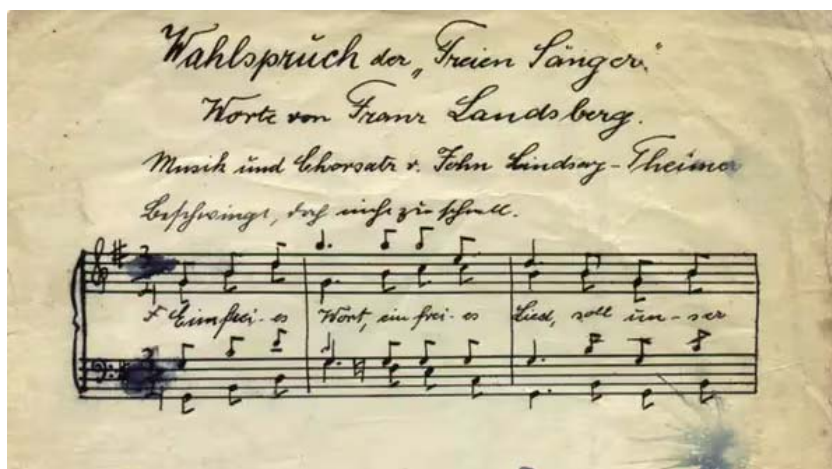 Wahlspruch der „Freien Sänger"
Worte von Franz Landsberg.
Musik und Chorsatz v. John Lindsay-Theimer
Beschwingt, doch nicht zu schnell.
F Ein frei-es Wort, ein frei-es Lied, soll un-ser